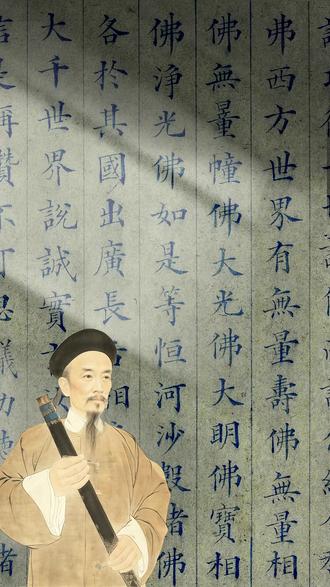 弗西方世界有無量壽佛無量相
佛無量幢佛大光佛大明佛寶相
佛淨光佛如是等恒河沙數諸佛
各於其國出廣長舌相
大千世界說誠實
是稱讚不可思議功德